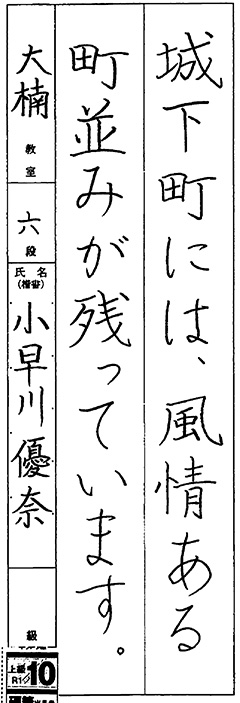 城下町には、風情ある
町並みが残っています。
大楠教室
六段
氏名
(楷書)
小早川優奈
級
上級
10